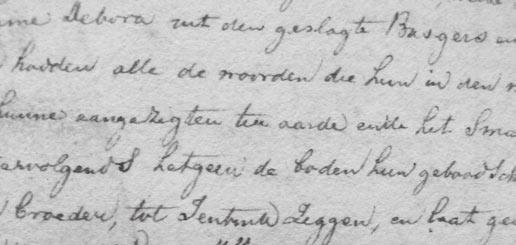 Debora uit den geslagte Basgers en
hadden alle de woorden die hun in den
hunne aangezigten ter aarde ende het
vervolgends hetgeen de boden hun gebood
broeder, tot Zeggen, en laat